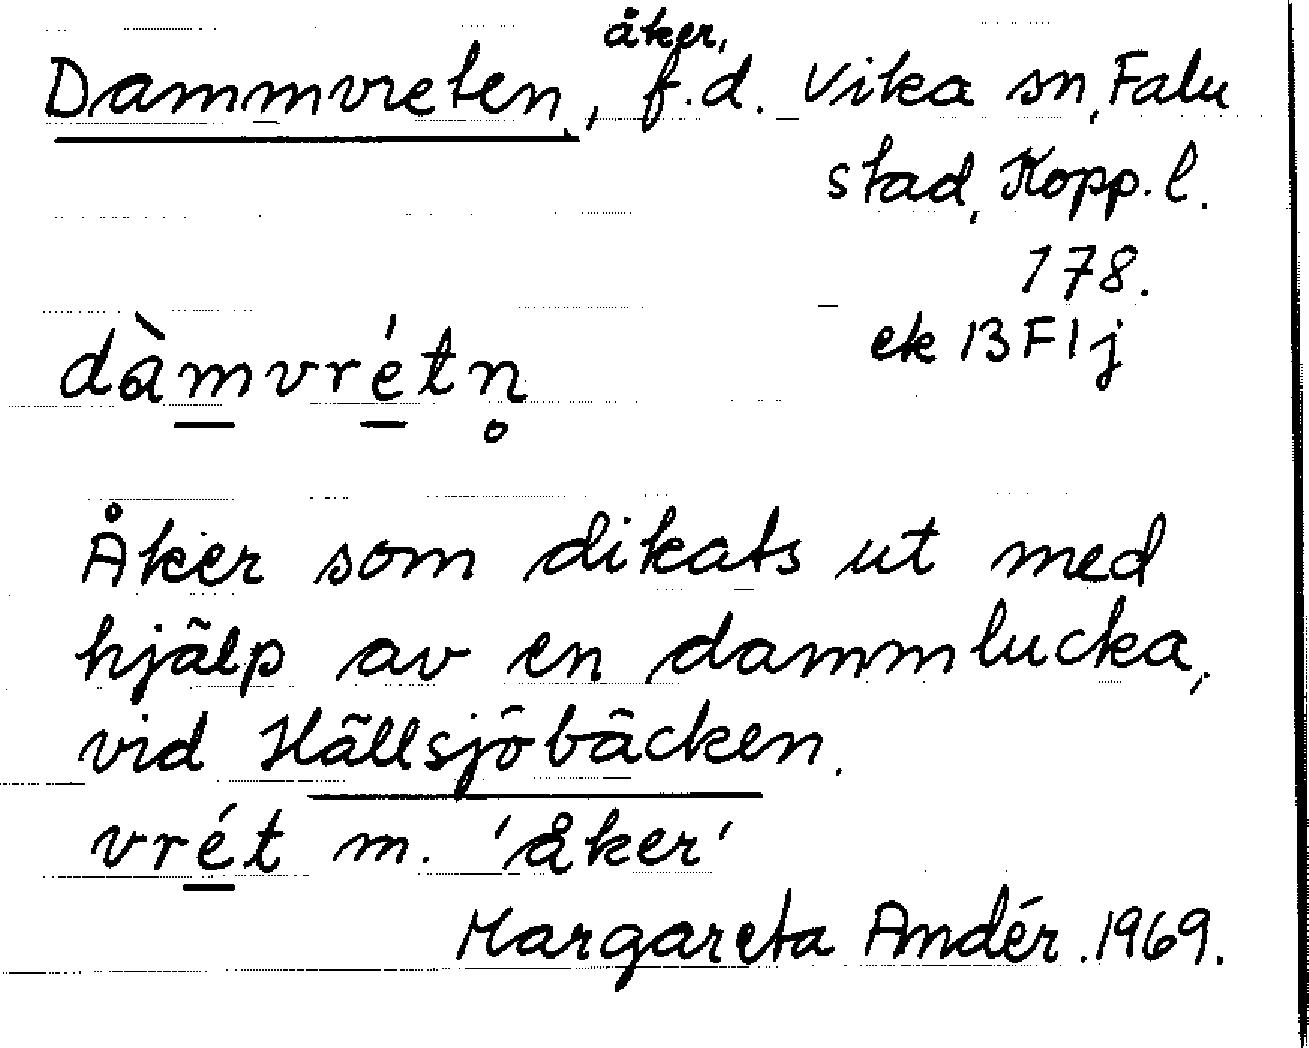 Dammvreten, åker, f.d. Vika sn, Falu
stad, Kopp. l.
178.
ek 13 F 1 j
dàm̲vré̲tn̥
Åker som dikats ut med
hjälp av en dammlucka,
vid Hällsjöbäcken.
vré̲t m. 'åker'
Margareta Andér. 1969.